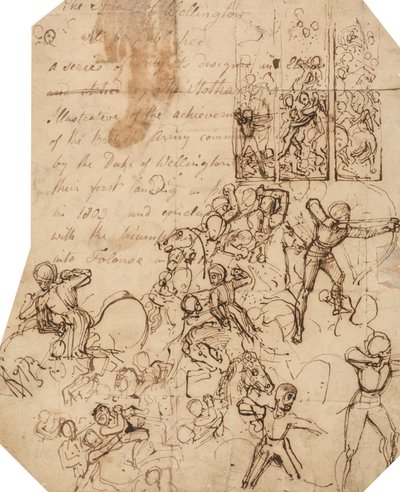 The
Wellington
will be
a series of designed
and etched by Stothard
Illustrative of the achievem
of the Army comm
by the Duke of Wellington
their first landing in
in 1803 and conclu
with the triumph
into Tolouse